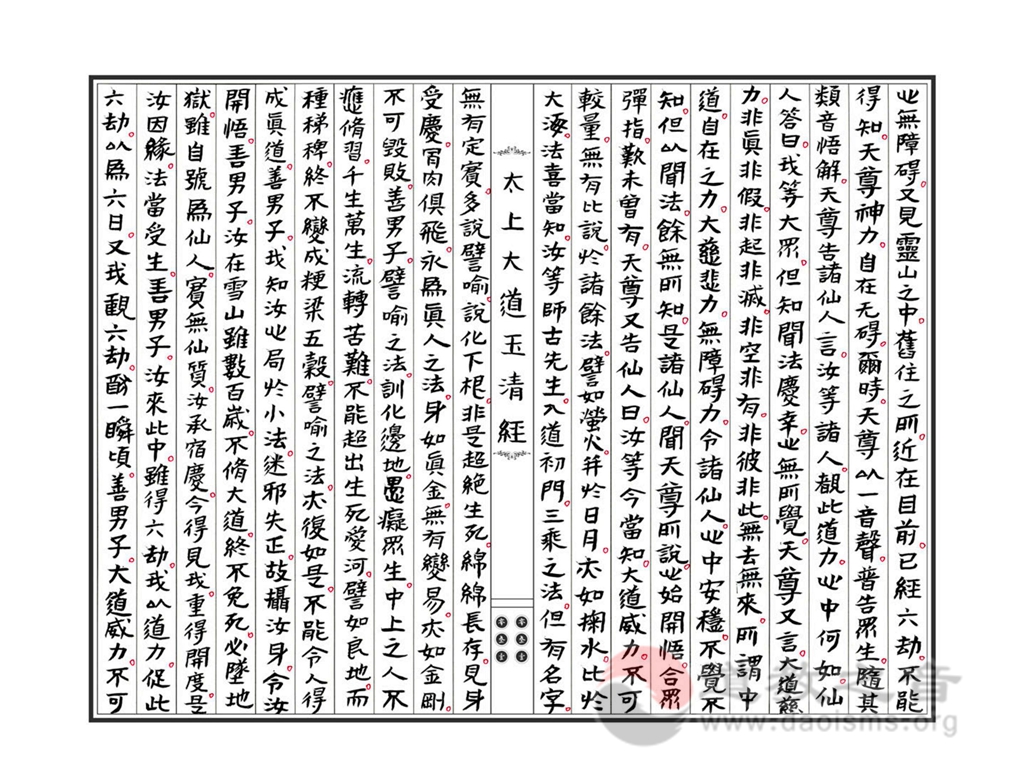 心無障碍又見靈山之中舊住之所近在目前已經六劫不能
得知天尊神力自在无碍爾時天尊以一音聲普告眾生隨其
類音悟解天尊告諸仙人言汝等諸人覩此道力心中何如仙
人答曰我等大眾但知聞法慶幸心無所覺天尊又言大道慈
力非真非假非起非滅非空非有非彼非此無去無來所謂中
道自在之力大慈悲力無障碍力令諸仙人心中安穩不覺不
知但以聞法餘無所知是諸仙人聞天尊所說心始開悟合眾
彈指歎未曾有天尊又告仙人曰汝等今當知大道威力不可
較量無有比說於諸餘法譬如螢火并於日月亦如掬水比於
大海法喜當知汝等師古先生入道初門三乘之法但有名字
太上大道玉清經
無有定實多說譬喻說化下根非是超絕生死綿綿長存見身
受慶骨肉俱飛永為真人之法身如真金無有變易亦如金剛
不可毀敗善男子譬喻之法訓化邊地愚癡眾生中上之人不
應脩習千生萬生流轉苦難不能超出生死愛河譬如良地而
種稊稗終不變成粳梁五穀譬喻之法亦復如是不能令人得
成真道善男子我知汝心局於小法迷邪失正故攝汝身令汝
開悟善男子汝在雪山雖數百歲不脩大道終不免死必墜地
獄雖自號為仙人實無仙質汝承宿慶今得見我重得開度是
汝因緣法當受生善男子汝來此中雖得六劫我以道力促此
六劫以為六日又我觀六劫酚一瞬頃善男子大道威力不可
道教之音
www.daoisms.org